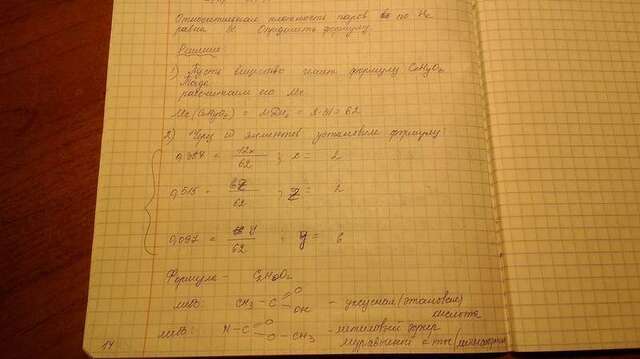 Относительная плотность паров по H₂
равна 31. Определить формулу.
Решение:
1) Пусть вещество имеет формулу CxHyOz
Тогда
рассчитаем его Mr
Mr(CxHyOz) = 2·31 = 62
2) Через ω элементов установим формулу
0,387 = 12x/62 ; x = 2
0,516 = 62 ; z = 2
0,097 = y/62 ; y = 6
Формула – C₂H₆O₂
либо: CH₃ – C O OH – уксусная (этановая)
кислота
либо: H – C O O – CH₃ – метиловый эфир
муравьиной к-ты
14